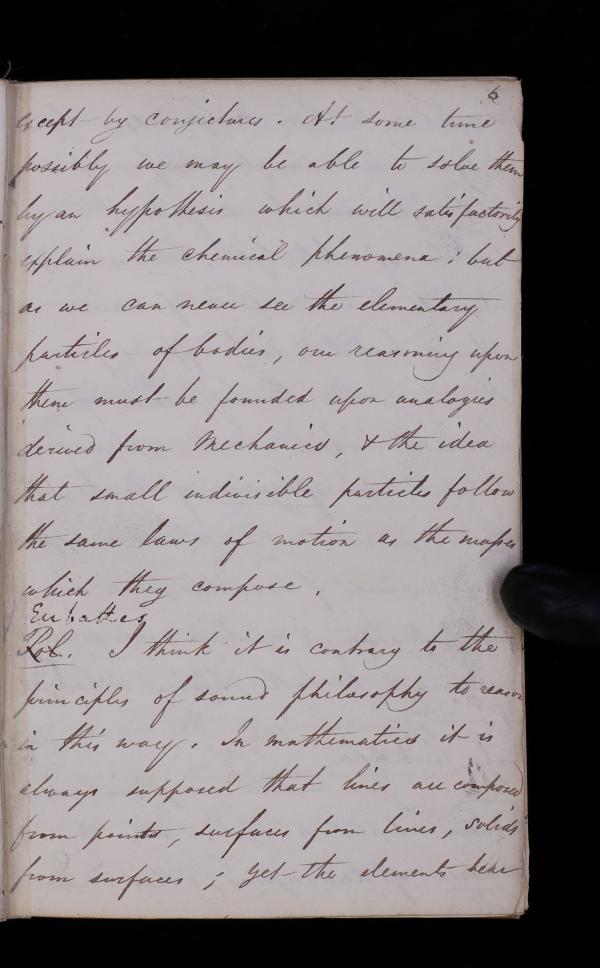 6
except by conjectures. At some time
possibly we may be able to solve them
by an hypothesis which will satisfactorily
explain the chemical phenomena; but
as we can never see the elementary
particles of bodies, our reasoning upon
them must be founded upon analogies
derived from Mechanics, & the idea
that small indivisible particles follow
the same laws of motion as the masses
which they compose.
Eubathes
Pol. I think it is contrary to the
principles of sound philosophy to reason
in this way. In mathematics it is
always supposed that lines are composed
from points, surfaces from lines, solids
from surfaces; yet the elements bear